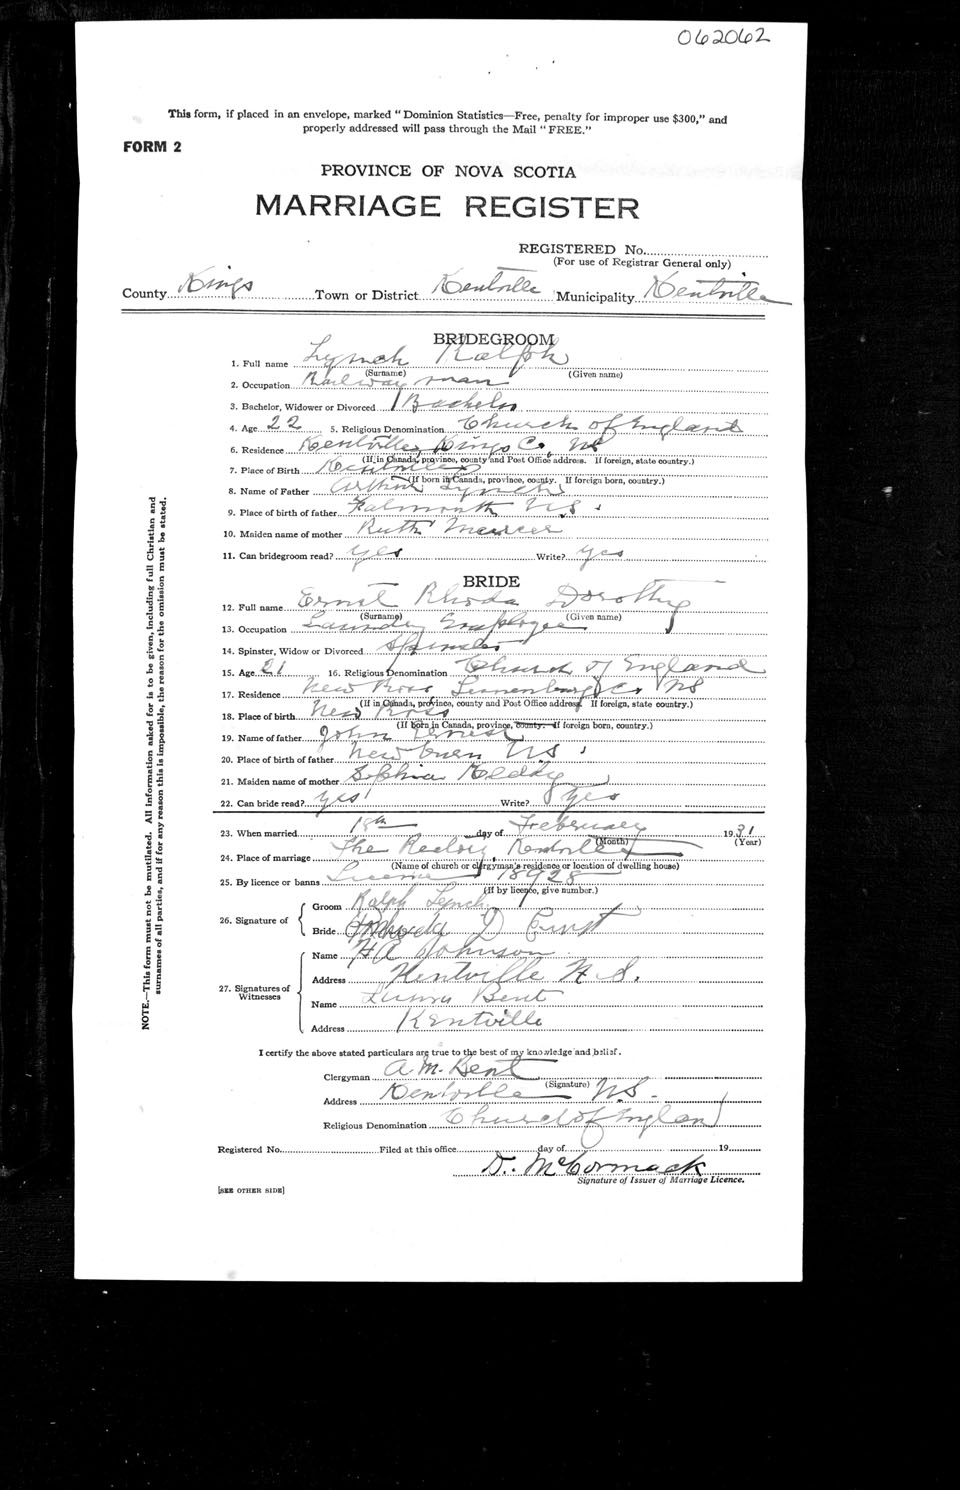 062062
This form, if placed in an envelope, marked "Dominion Statistics—Free, penalty for improper use $300," and
properly addressed will pass through the Mail "FREE."
FORM 2
PROVINCE OF NOVA SCOTIA
MARRIAGE REGISTER
REGISTERED No.
(For use of Registrar General only)
County Kings Town or District Kentville Municipality Kentville
BRIDEGROOM
1. Full name Lynch Ralph
(Surname) (Given name)
2. Occupation Railway man
3. Bachelor, Widower or Divorced Bachelor
4. Age 22 5. Religious Denomination Church of England
6. Residence Kentville, Kings Co, NS
(If in Canada, province, county and Post Office address. If foreign, state country.)
7. Place of Birth Kentville
(If born in Canada, province, county. If foreign born, country.)
8. Name of Father Arthur Lynch
9. Place of birth of father Falmouth N.S.
10. Maiden name of mother Ruth Mercer
11. Can bridegroom read? yes Write? yes
BRIDE
12. Full name Ernst Rhoda Dorothy
(Surname) (Given name)
13. Occupation Laundry Employee
14. Spinster, Widow or Divorced Spinster
15. Age 21 16. Religious Denomination Church of England
17. Residence New Ross Lunenburg Co NS
(If in Canada, province, county and Post Office address. If foreign, state country.)
18. Place of birth New Ross
(If born in Canada, province, county. If foreign born, country.)
19. Name of father John Ernest
20. Place of birth of father N.S.
21. Maiden name of mother Sophia
22. Can bride read? yes Write? Yes
23. When married 18th day of February 1931
(Month) (Year)
24. Place of marriage The Rectory Kentville
(Name of church or clergyman's residence or location of dwelling house)
25. By licence or banns License 18928
(If by licence, give number.)
26. Signature of
Groom Ralph Lynch
Bride D Ernst
27. Signatures of
Witnesses
Name H A Johnson
Address Kentville N.S.
Name Bent
Address Kentville
I certify the above stated particulars are true to the best of my knowledge and belief.
Clergyman A. M. Bent
(Signature)
Address Kentville N.S.
Religious Denomination Church of England
Registered No. Filed at this office day of 19
D. McCormack
Signature of Issuer of Marriage Licence.
[SEE OTHER SIDE]
NOTE.—This form must not be mutilated. All information asked for is to be given, including full Christian and
surnames of all parties, and if for any reason this is impossible, the reason for the omission must be stated.